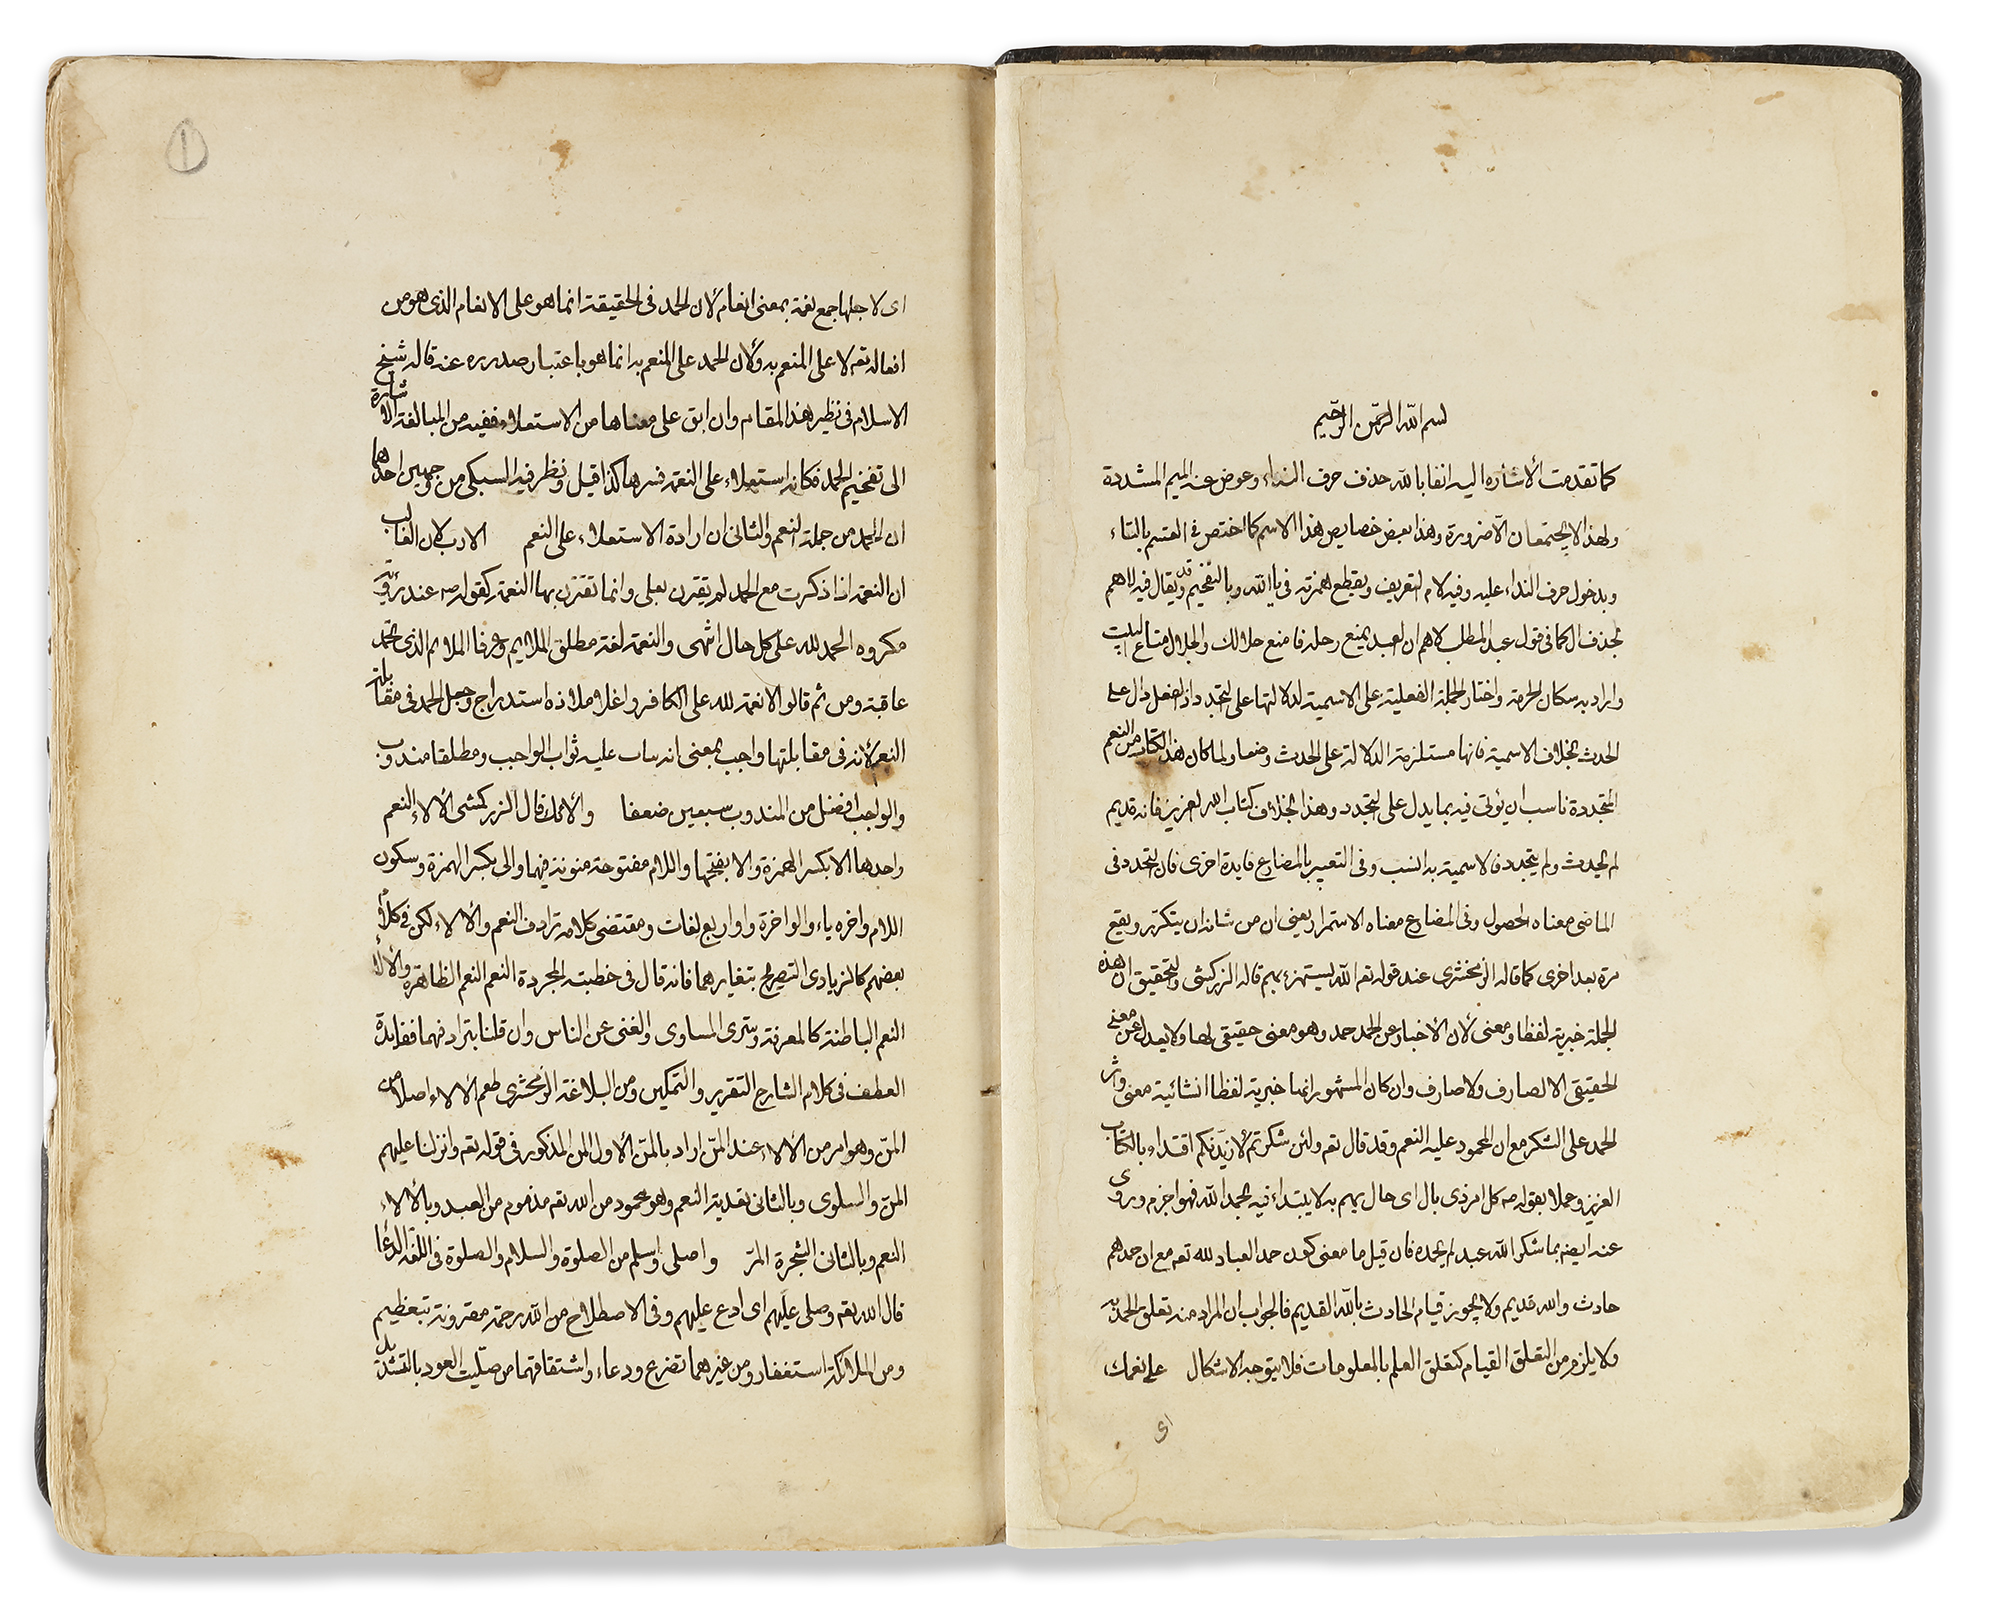 بسم الله الرحمن الرحيم
كما تقدمت الاشارة اليه انفا بالله حذف حرف النداء وعوض عنه الميم المشددة
ولهذا لا يجتمعان الا ضرورة وهذا بعض خصايص هذا الاسم كما اختص في القسم بالتاء
وبدخول حرف النداء عليه وفيه لام التعريف وبقطع همزته في يا الله وبالتفخيم وقد يقال فيه لاهم
بحذف ال كما في قول عبد المطلب لاهم ان العبد يمنع رحله فامنع حلالك والحلال متاع البيت
واراد به سكان الحرم واختار الجملة الفعلية على الاسمية لدلالتها على التجدد اذ الفعل دال على
الحدث بخلاف الاسمية فانها مستلزمة الدلالة على الحدث وضعا ولما كان هذا الكتاب من النعم
المتجددة ناسب ان يؤتى فيه بما يدل على التجدد وهذا بخلاف كتاب الله العزيز فانه قديم
لم يحدث ولم يتجدد فالاسمية به انسب وفي التعبير بالمضارع فايدة اخرى فان التجدد في
الماضي معناه الحصول وفي المضارع معناه الاستمرار يعني ان من شانه ان يتكرر ويقع
مرة بعد اخرى كما قاله الزمخشري عند قوله تعه الله يستهزء بهم قاله الزركشي والتحقيق ان هذه
الجملة خبرية لفظا ومعنى لان الاخبار عن الحمد حمد وهو معنى حقيقي لها ولا يعدل عن معنى
الحقيقي الا لصارف ولا صارف وان كان المشهور انها خبرية لفظا انشائية معنى واثر
الحمد على الشكر مع ان المحمود عليه النعم وقد قال تعه ولئن شكرتم لازيدنكم اقتداء بالكتاب
العزيز وعملا بقوله صه كل امر ذي بال اي حال يهم به لا يبتداء فيه بحمد الله فهو اجزم وروى
عنه ايضه ما شكر الله عبد لم يحمده فان قيل ما معنى كون حمد العباد لله تعه مع ان حمدهم
حادث والله قديم ولا يجوز قيام الحادث بالله القديم فالجواب ان المراد منه تعلق الحمد به
ولا يلزم من التعلق القيام كتعلق العلم بالمعلومات فلا يتوجه الاشكال على نعمك
اى
اى لاجلها جمع نعمة بمعنى انعام لان الحمد في الحقيقة انما هو على الانعام الذي هو من
افعاله تعه لا على المنعم به ولان الحمد على المنعم به انما هو باعتبار صدوره عنه قاله شيخ
الاسلام في نظير هذا المقام وان ابق على معناها من الاستعلاء ففيه من المبالغة الاشارة
الى تفخيم الحمد فكانه استعلاء على النعمة فسرها كذا قيل ونظر فيه السبكي من وجهين احدهما
ان الحمد من جملة النعم والثاني ان ارادة الاستعلاء على النعم الادب لان الغالب
ان النعمة اذا ذكرت مع الحمد لم يقترن بعلى وانما تقترن بها النعمة كقوله صه عند رؤية
مكروه الحمد لله على كل حال انتهى والنعمة لغة مطلق الملايم وعرفا الملايم الذي تحمد
عاقبته ومن ثم قالوا لا نعمة لله على الكافر وانما ملاذه استدراج وجعل الحمد في مقابلة
النعم لانه في مقابلتها واجب بمعنى انه يثاب عليه ثواب الواجب ومطلقا مندوب
والواجب افضل من المندوب بسبعين ضعفا والائك قال الزركشي الالاء النعم
واحدها الا بكسر الهمزة والا بفتحها واللام مفتوحة منونة فيهما والى بكسر الهمزة وسكون
اللام واخره ياء والو اخرة واو اربع لغات ومقتضى كلامه ترادف النعم والالاء لكن في كلام
بعضهم كالزيادي التصريح بتغايرهما فانه قال في خطبته المجردة النعم النعم الظاهرة والالاء
النعم الباطنة كالمعرفة وسترى المساوى والغنى عن الناس وان قلنا بترادفهما ففايدة
العطف في كلام الشارح التقرير والتمكين ومن البلاغة الزمخشري طعم الالاء اصلا من
المن وهو امر من الالاء عند المن اراد بالمن الاول المن المذكور في قوله تعه وانزلنا عليهم
المن والسلوى وبالثاني تعدية النعم وهو محمود من الله تعه مذموم من العبد وبالالاء
النعم وبالثاني الشجرة المر واصلى واسلم من الصلوة والسلام والصلوة في اللغة الدعا
قال الله تعه وصلى عليهم اى ادع عليهم وفي الاصطلاح من الله رحمة مقرونة بتعظيم
ومن الملائكة استغفار ومن غيرهما تضرع ودعاء واشتقاقهما من صليت العود بالتشديد
١